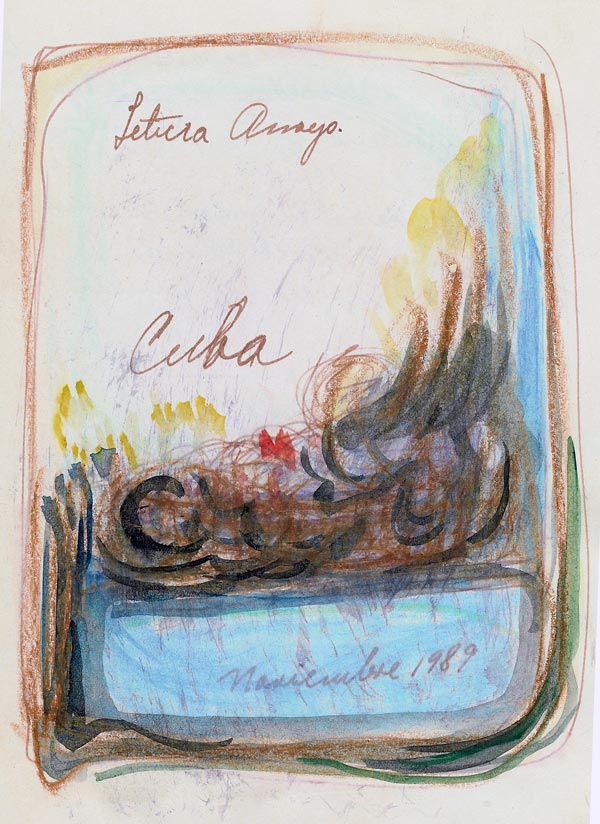 Leticia Arroyo.
Cuba
Noviembre 1989